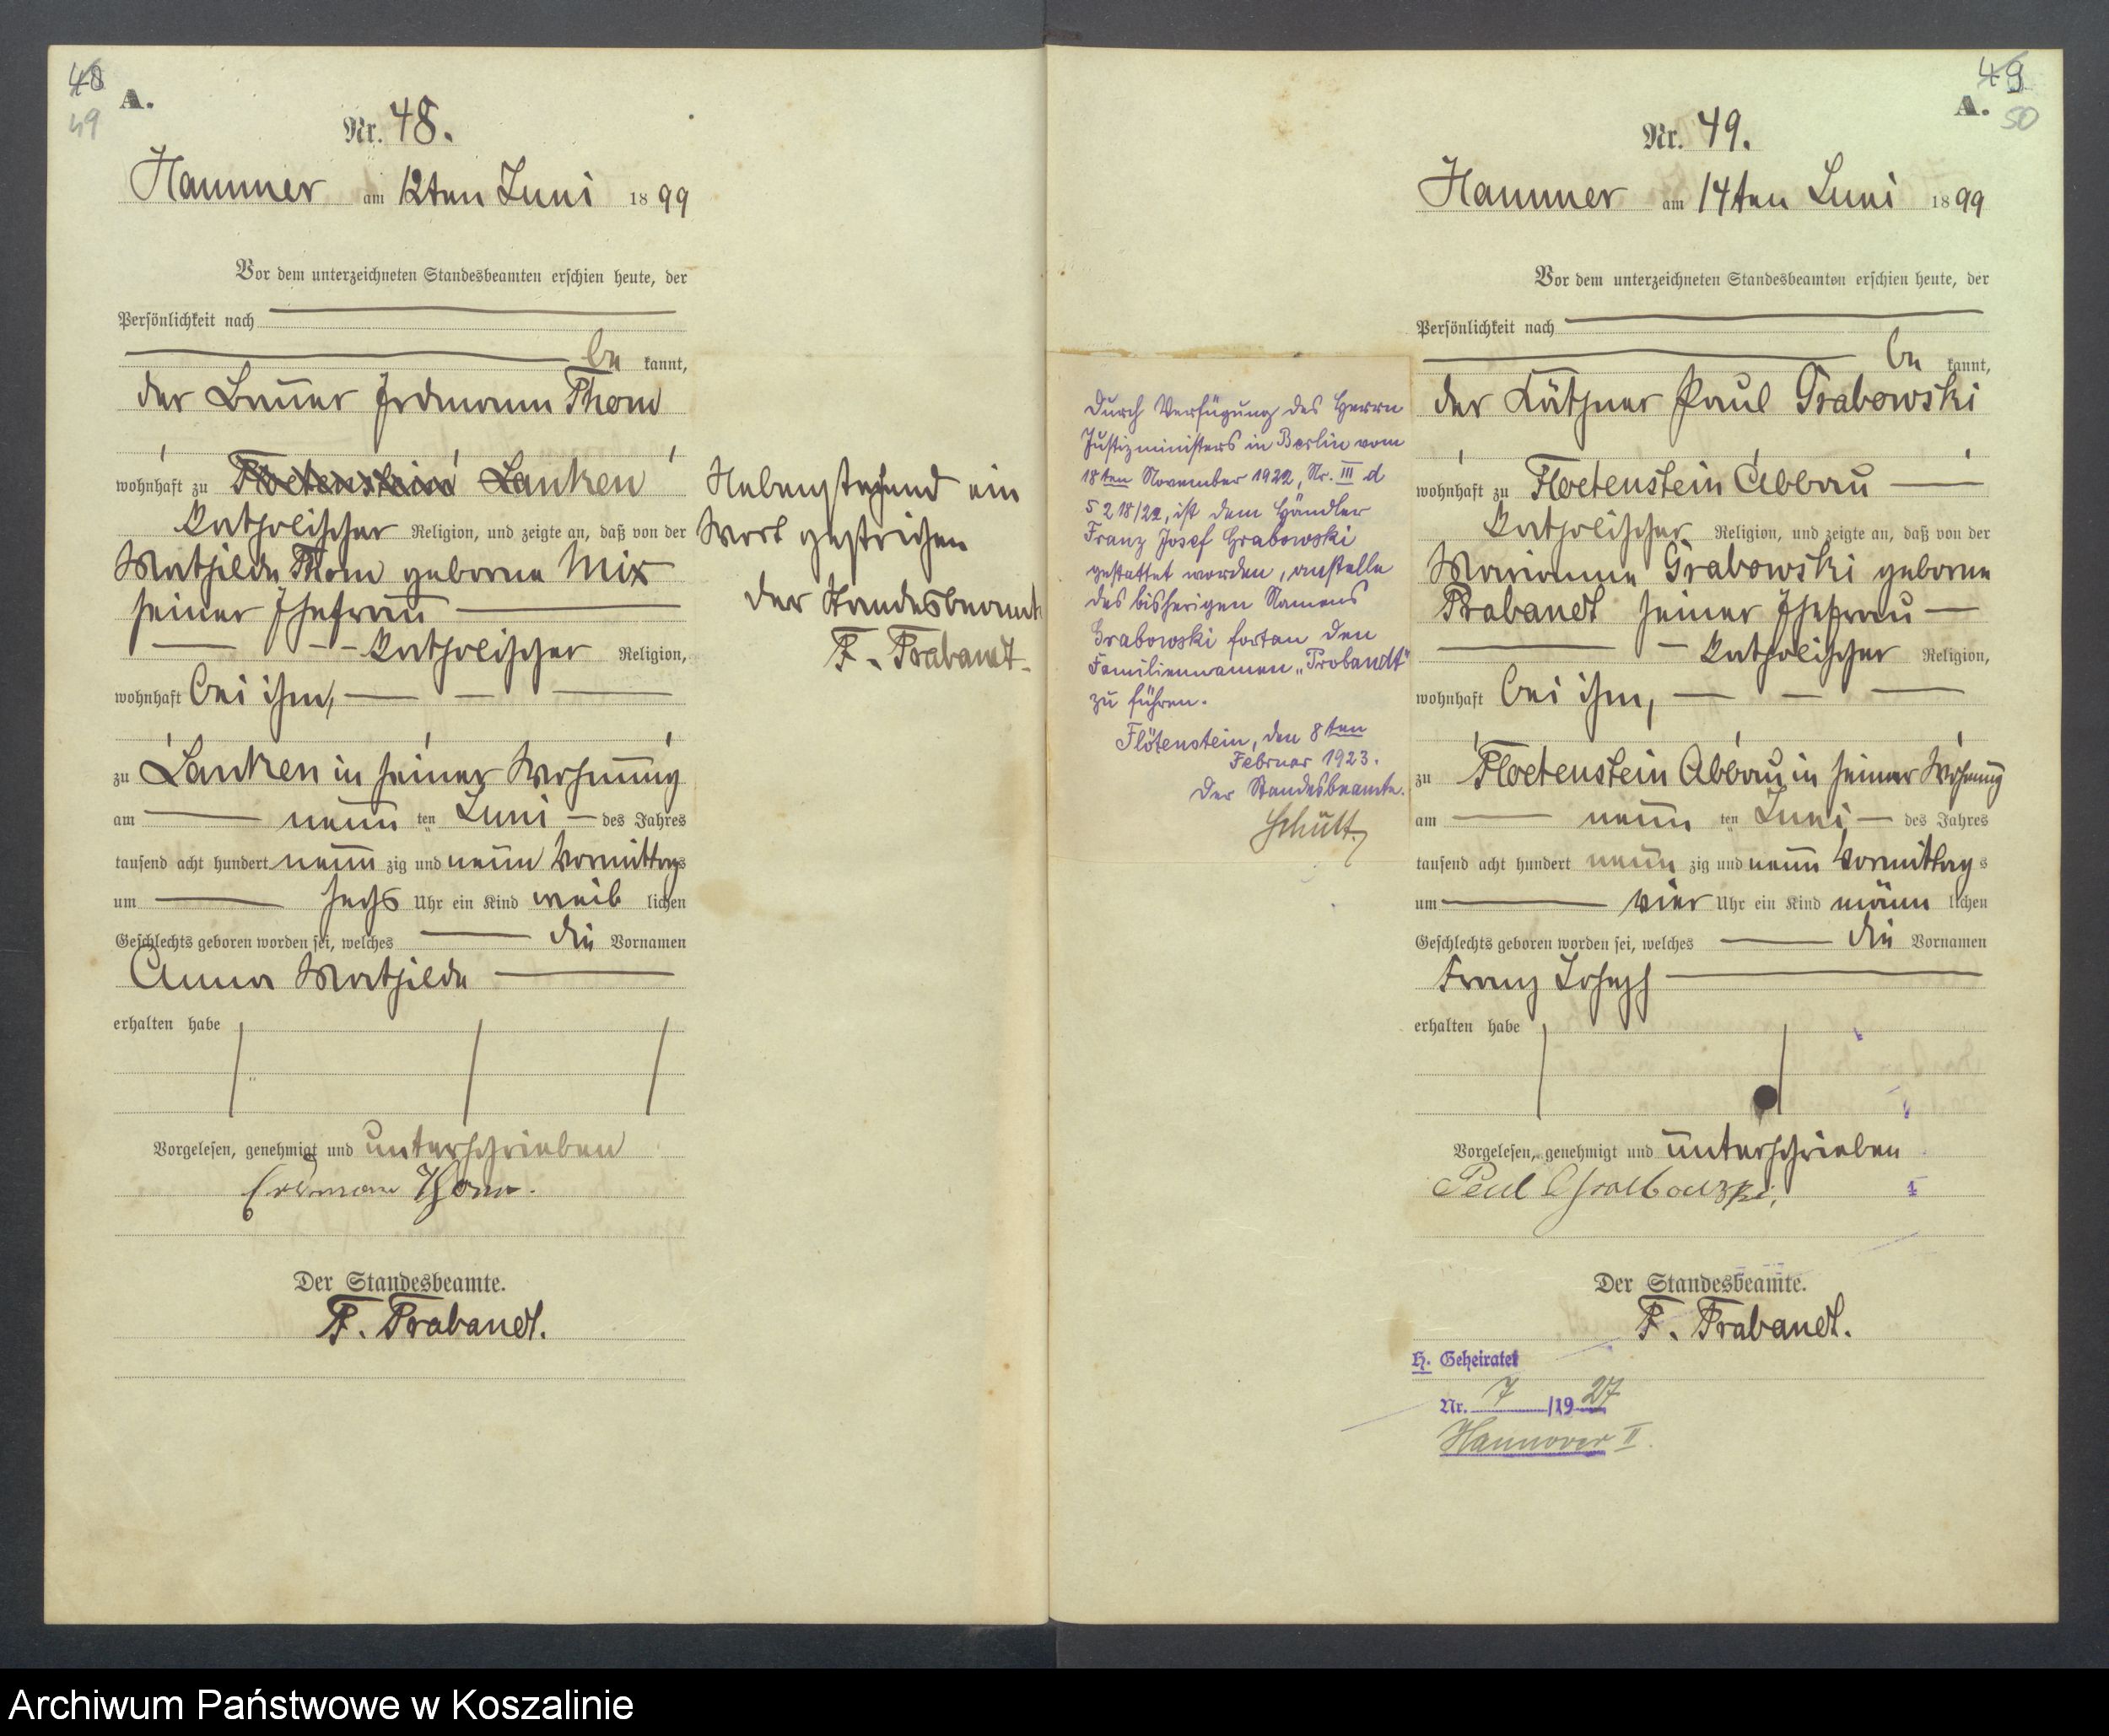 48
49
A.
Nr. 48.
Hammer am 12ten Juni 1899
Vor dem unterzeichneten Standesbeamten erschien heute, der
Persönlichkeit nach
be kannt,
der Bauer Erdmann Thom
wohnhaft zu Floetenstein Lanken
katholischer Religion, und zeigte an, daß von der
Mathilde Thom geborne Mix
seiner Ehefrau
katholischer Religion,
wohnhaft bei ihm,
zu Lanken in seiner Wohnung
am neun ten Juni des Jahres
tausend acht hundert neun zig und neun Vormittags
um sechs Uhr ein Kind weib lichen
Geschlechts geboren worden sei, welches die Vornamen
Anna Mathilde
erhalten habe
Vorgelesen, genehmigt und unterschrieben
Erdmann Thom.
Der Standesbeamte.
F. Trabandt.
Nebenstehend ein
Wort gestrichen
Der Standesbeamte
F. Trabandt
49
A.
50
Nr. 49.
Hammer am 14ten Juni 1899
Vor dem unterzeichneten Standesbeamten erschien heute, der
Persönlichkeit nach
be kannt,
der Käthner Paul Grabowski
wohnhaft zu Floetenstein Abbau
katholischer Religion, und zeigte an, daß von der
Marianne Grabowski geborne
Trabandt seiner Ehefrau
katholischer Religion,
wohnhaft bei ihm,
zu Floetenstein Abbau in seiner Wohnung
am neun ten Juni des Jahres
tausend acht hundert neun zig und neun Vormittag s
um vier Uhr ein Kind männ lichen
Geschlechts geboren worden sei, welches die Vornamen
Franz Joseph
erhalten habe
Vorgelesen, genehmigt und unterschrieben
Paul Grabowski,
Der Standesbeamte.
F. Trabandt.
H. Geheiratet
Nr. 7/1927
Hannover II.
Durch Verfügung des Herrn
Justizministers in Berlin vom
18ten November 1922, Nr. III d
5218/22, ist dem Händler
Franz Josef Grabowski
gestattet worden, anstelle
des bisherigen Namens
Grabowski fortan den
Familiennamen „Trobandt"
zu führen.
Flötenstein, den 8ten
Februar 1923.
Der Standesbeamte.
Schütt
Archiwum Państwowe w Koszalinie